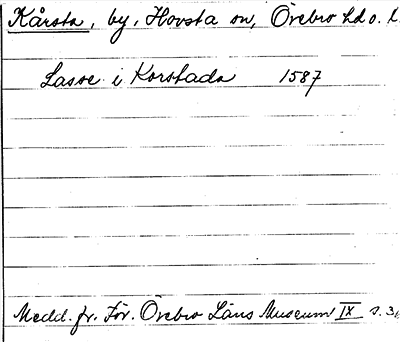 Kårsta, by, Hovsta sn, Örebro hd o. l.
Lasse i Korstada 1587
Medd. fr. För. Örebro Läns Museum IX s. 36